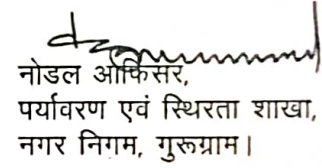 नोडल ऑफिसर,
पर्यावरण एवं स्थिरता शाखा,
नगर निगम, गुरूग्राम।